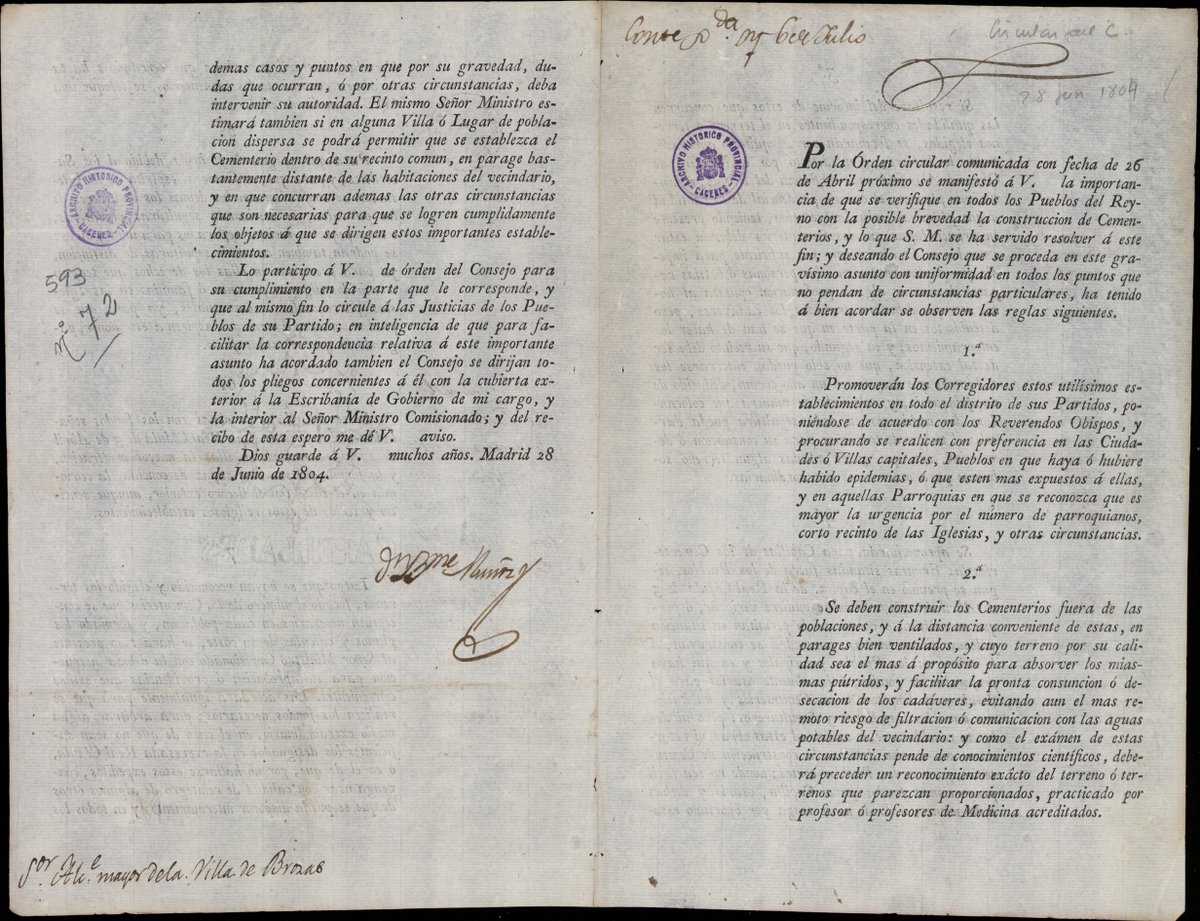 demas casos y puntos en que por su gravedad, du-
das que ocurran, ó por otras circunstancias, deba
intervenir su autoridad. El mismo Señor Ministro es-
timará tambien si en alguna Villa ó Lugar de pobla-
cion dispersa se podrá permitir que se establezca el
Cementerio dentro de su recinto comun, en parage bas-
tantemente distante de las habitaciones del vecindario,
y en que concurran ademas las otras circunstancias
que son necesarias para que se logren cumplidamente
los objetos á que se dirigen estos importantes estable-
cimientos.
Lo participo á V. de órden del Consejo para
su cumplimiento en la parte que le corresponde, y
que al mismo fin lo circule á las Justicias de los Pue-
blos de su Partido; en inteligencia de que para fa-
cilitar la correspondencia relativa á este importante
asunto ha acordado tambien el Consejo se dirijan to-
dos los pliegos concernientes á él con la cubierta ex-
terior á la Escribanía de Gobierno de mi cargo, y
la interior al Señor Ministro Comisionado; y del re-
cibo de esta espero me dé V. aviso.
Dios guarde á V. muchos años. Madrid 28
de Junio de 1804.
Muñoz
Sor. Alce. mayor dela Villa de Brozas
ARCHIVO HISTORICO PROVINCIAL
CACERES
593
Nº 72
6 de Julio
Circular del C.
28 Jun. 1804
ARCHIVO HISTORICO PROVINCIAL
CACERES
Por la Órden circular comunicada con fecha de 26
de Abril próximo se manifestó á V. la importan-
cia de que se verifique en todos los Pueblos del Rey-
no con la posible brevedad la construccion de Cemen-
terios, y lo que S. M. se ha servido resolver á este
fin; y deseando el Consejo que se proceda en este gra-
vísimo asunto con uniformidad en todos los puntos que
no pendan de circunstancias particulares, ha tenido
á bien acordar se observen las reglas siguientes.
1.ª
Promoverán los Corregidores estos utilísimos es-
tablecimientos en todo el distrito de sus Partidos, po-
niéndose de acuerdo con los Reverendos Obispos, y
procurando se realicen con preferencia en las Ciuda-
des ó Villas capitales, Pueblos en que haya ó hubiere
habido epidemias, ó que esten mas expuestos á ellas,
y en aquellas Parroquias en que se reconozca que es
mayor la urgencia por el número de parroquianos,
corto recinto de las Iglesias, y otras circunstancias.
2.ª
Se deben construir los Cementerios fuera de las
poblaciones, y á la distancia conveniente de estas, en
parages bien ventilados, y cuyo terreno por su cali-
dad sea el mas á propósito para absorver los mias-
mas pútridos, y facilitar la pronta consuncion ó de-
secacion de los cadáveres, evitando aun el mas re-
moto riesgo de filtracion ó comunicacion con las aguas
potables del vecindario: y como el exámen de estas
circunstancias pende de conocimientos científicos, debe-
rá preceder un reconocimiento exâcto del terreno ó ter-
renos que parezcan proporcionados, practicado por
profesor ó profesores de Medicina acreditados.